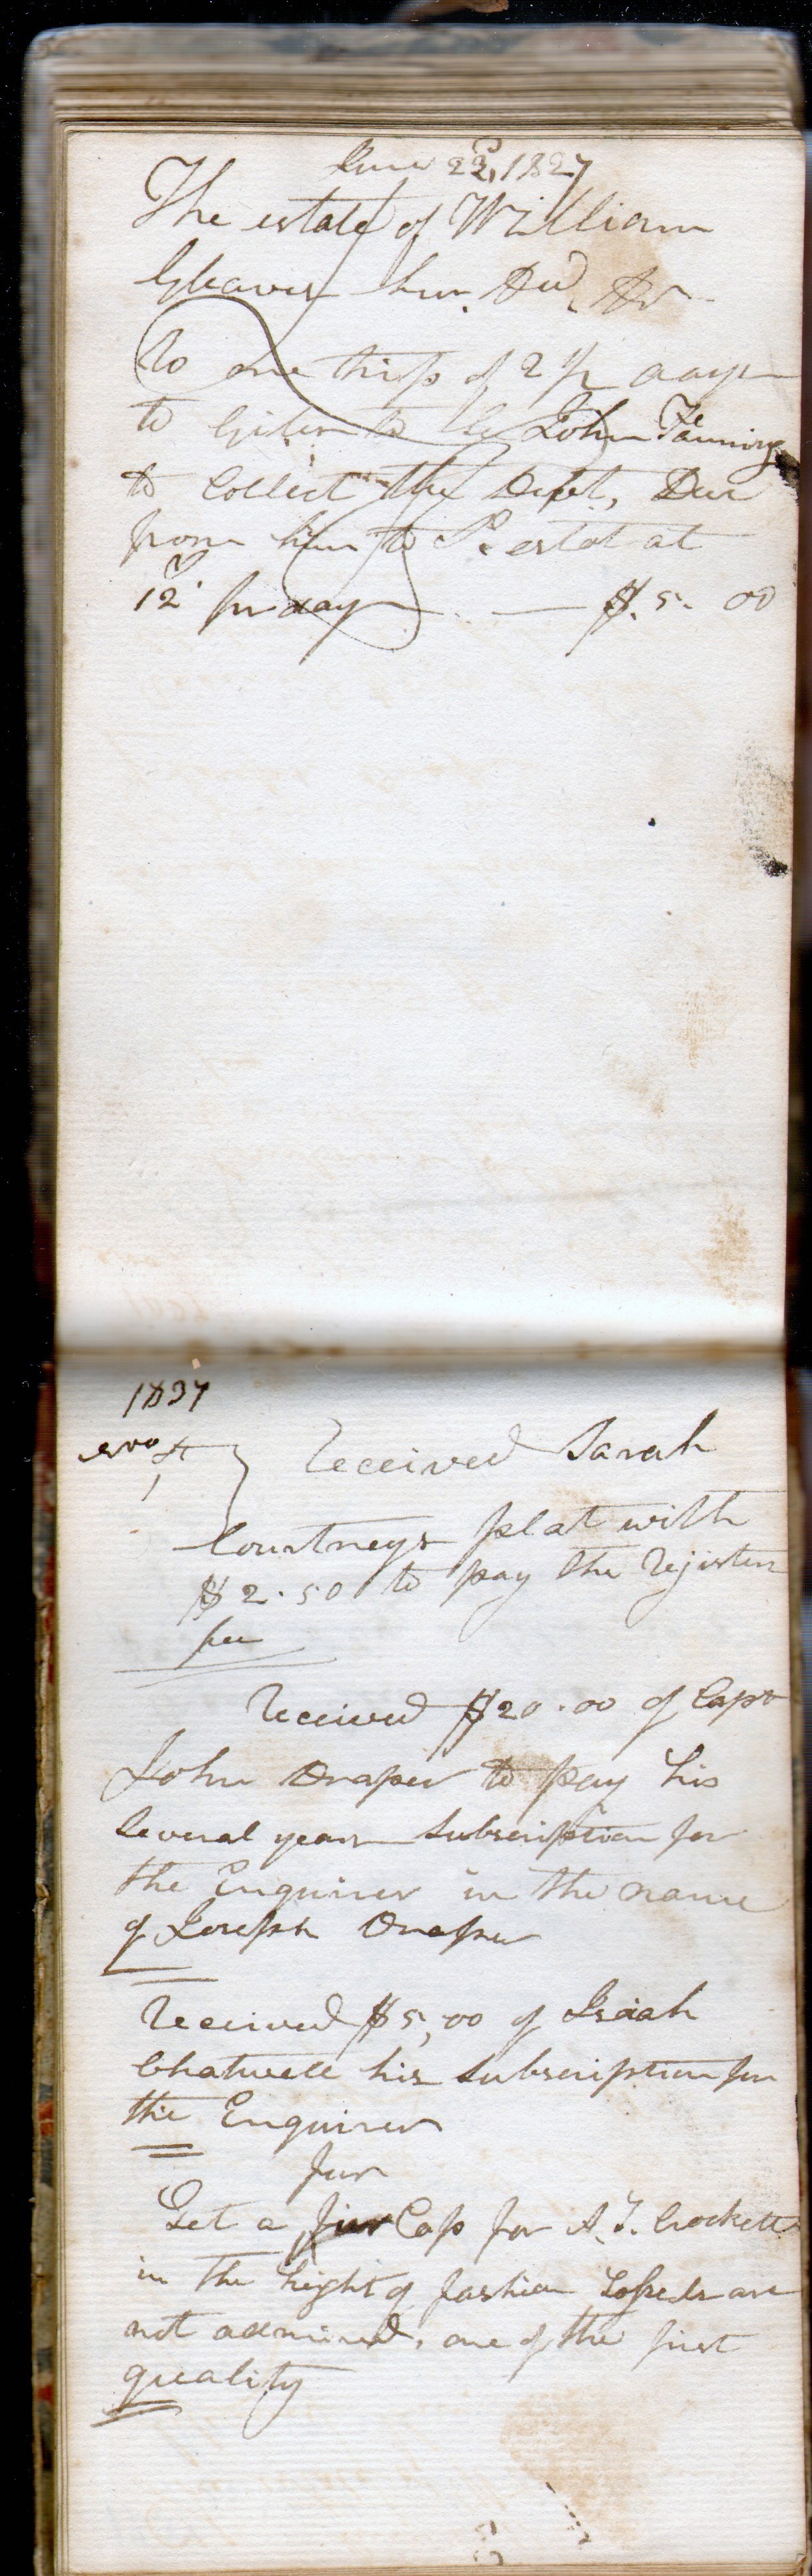 June 23, 1827
The estate of William
Gleaves Jun. Decd Dr
To one trip of 2 1/2 days
to Giles to John Fanning
to Collect the Debt, Due
from him to Sd estat at
12/ pr day — $5. 00
1837
Received Sarah
Courtneys plat with
$2.50 to pay the Register
fee
Received $20.00 of Capt
John Draper to pay his
several years subscription for
the Enquirer in the name
of Joseph Draper
Received $5,00 of Isaiah
Chatwell his subscription for
the Enquirer
fur
Get a fur Cap for A. T. Crockett
in the hight of fashion are
not admired, one of the first
quality